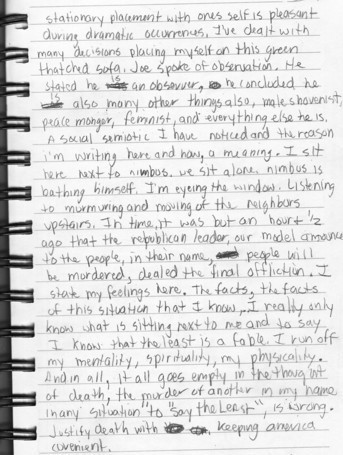 stationary placement with ones self is pleasant
during dramatic occurrences. I've dealt with
many decisions placing myself on this green
thatched sofa. Joe spoke of observation. He
stated he is an observer, he concluded he
is also many other things also, male shovenist,
peace monger, feminist, and everything else he is.
A social semiotic I have noticed and the reason
i'm writing here and now, a meaning. I sit
here next to nimbus. we sit alone. nimbus is
bathing himself. I'm eyeing the window. Listening
to murmuring and moving of the neighbors
upstairs. In time, it was but an hour 1/2
ago that the republican leader, our model announce
to the people, in their name, people will
be murdered, dealed the final offliction. I
state my feelings here. The facts, the facts
of this situation that I know, I really only
know what is sitting next to me and to say
I know that the least is a fable. I run off
my mentality, spirituality, my physicality.
And in all, it all goes empty in the thought
of death, the murder of another in my name
in any situation to "say the Least", is wrong.
Justify death with keeping america
cuvenient.